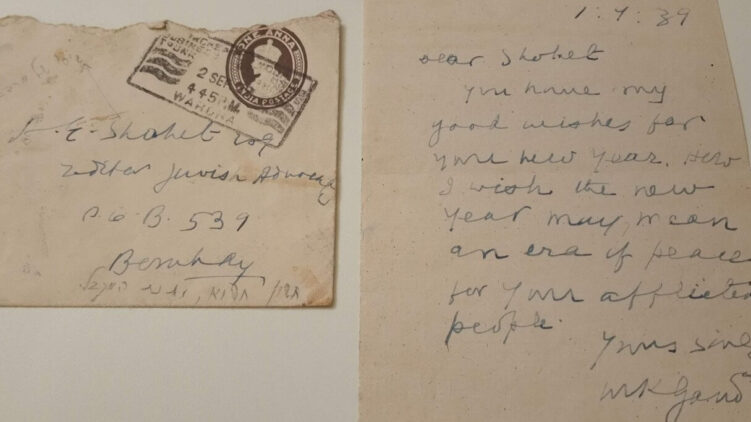 ONE ANNA
INDIA POSTAGE
2 SEP
4.45 P.M.
WARDHA
A. E. Shohet Esq
Editor Jewish Advocate
P.O.B. 539
Bombay
1.9.39
Dear Shohet
You have my
good wishes for
your new year. How
I wish the new
year may mean
an era of peace
for your afflicted
people.
Yours sinc
MKGand